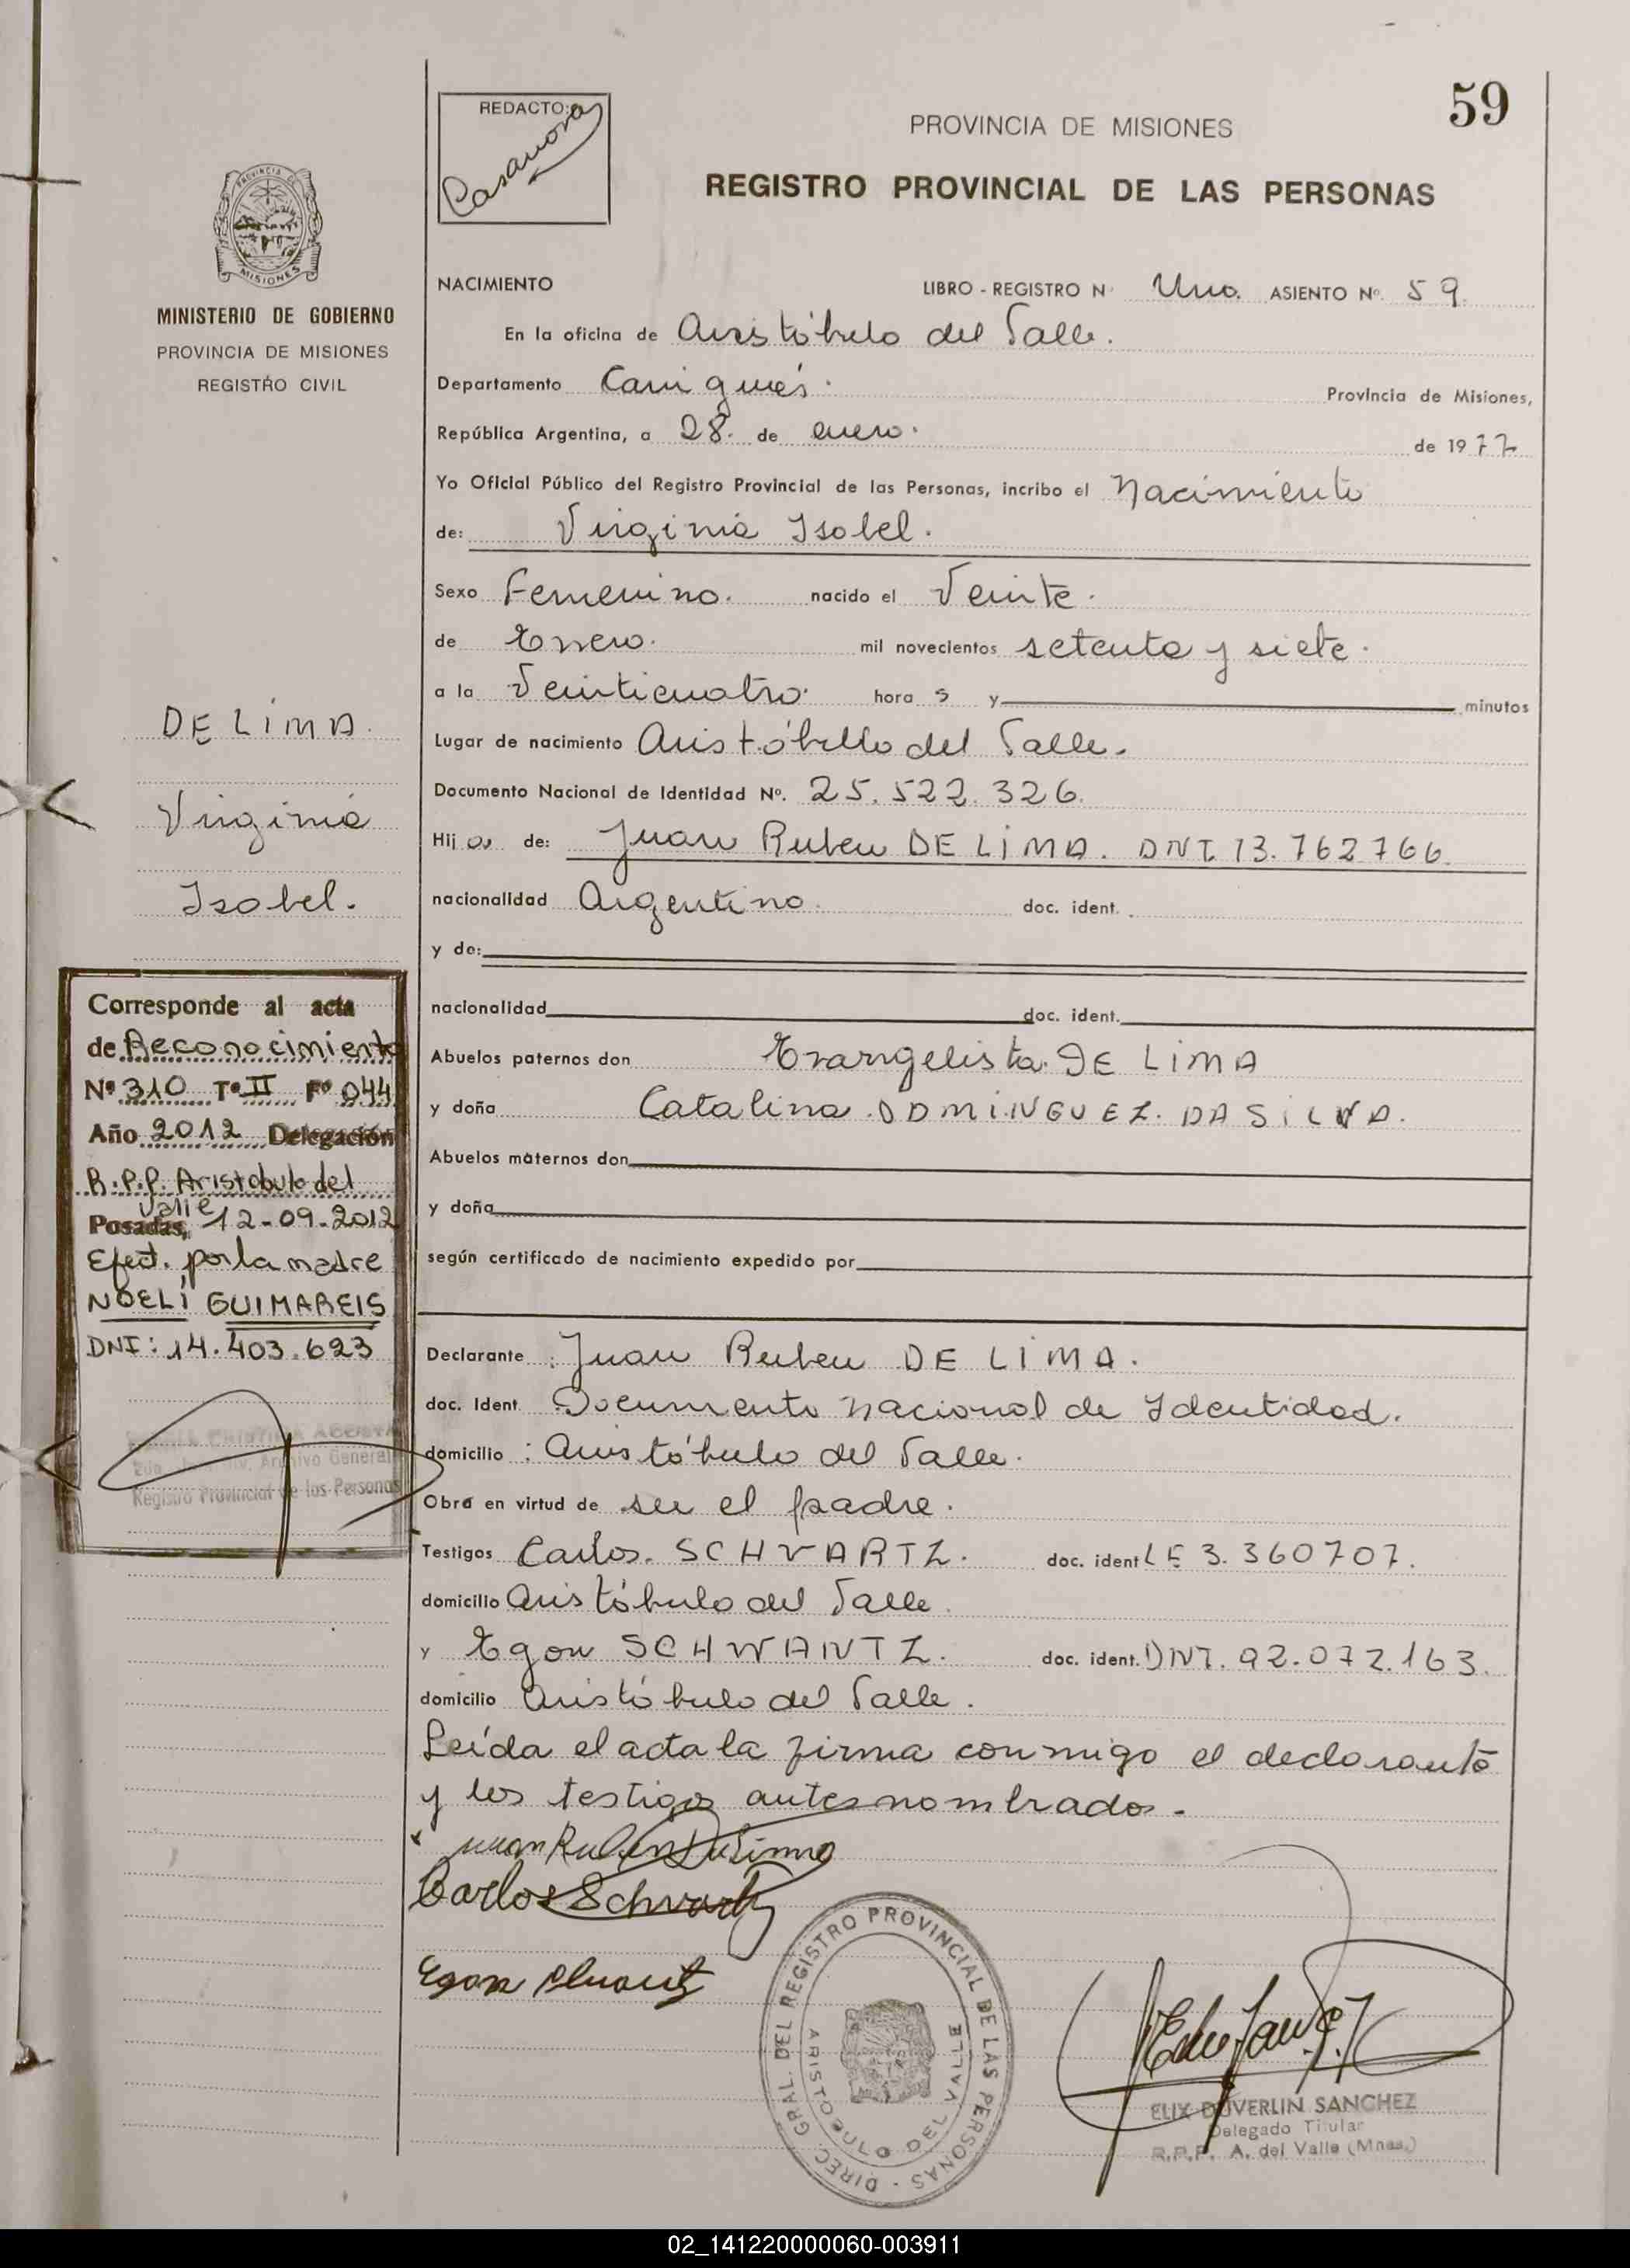 59
REDACTO:
Casanova
PROVINCIA DE MISIONES
REGISTRO PROVINCIAL DE LAS PERSONAS
PROVINCIA DE
MISIONES
MINISTERIO DE GOBIERNO
PROVINCIA DE MISIONES
REGISTRO CIVIL
NACIMIENTO LIBRO - REGISTRO Nº Uno. ASIENTO Nº. 59.
En la oficina de Aristóbulo del Valle.
Departamento Cainguás. Provincia de Misiones,
República Argentina, a 28. de enero. de 1977
Yo Oficial Público del Registro Provincial de las Personas, incribo el Nacimiento
de: Virginia Isabel.
Sexo Femenino. nacido el Veinte.
de Enero. mil novecientos setenta y siete.
a la Veinticuatro. hora s y minutos
Lugar de nacimiento Aristóbulo del Valle.
Documento Nacional de Identidad Nº. 25.522.326.
Hij a de: Juan Ruben DE LIMA. DNI. 13.762766.
nacionalidad Argentino. doc. ident.
y de:
nacionalidad doc. ident.
Abuelos paternos don Evangelista DE LIMA
y doña Catalina DOMINGUEZ DA SILVA.
Abuelos maternos don
y doña
según certificado de nacimiento expedido por
Declarante : Juan Ruben DE LIMA.
doc. Ident. Documento Nacional de Identidad.
domicilio : Aristóbulo del Valle.
Obra en virtud de ser el padre.
Testigos Carlos SCHVARTZ. doc. ident LE 3.360707.
domicilio Aristóbulo del Valle.
y Egon SCHWANTZ. doc. ident. DNI. 92.072.163.
domicilio Aristóbulo del Valle.
Leída el acta la firma conmigo el declarante
y los testigos antes nombrados.
Juan Ruben De Lima
Carlos Schvartz
Egon
DE LIMA.
Virginia
Isabel.
Corresponde al acta
de Reconocimiento
Nº 310 Tº II Fº 044
Año 2012 Delegación
R.P.P. Aristobulo del
Valle
Posadas, 12-09-2012
Efect. por la madre
NOELÍ GUIMAREIS
DNI: 14.403.623
CRISTINA ACOSTA
Archivo General
Registro Provincial de las Personas
DIREC. GRAL. DEL REGISTRO PROVINCIAL DE LAS PERSONAS
ARISTOBULO DEL VALLE
ELIX DUVERLIN SANCHEZ
Delegado Titular
R.P.P. A. del Valle (Mnes.)
02_141220000060-003911